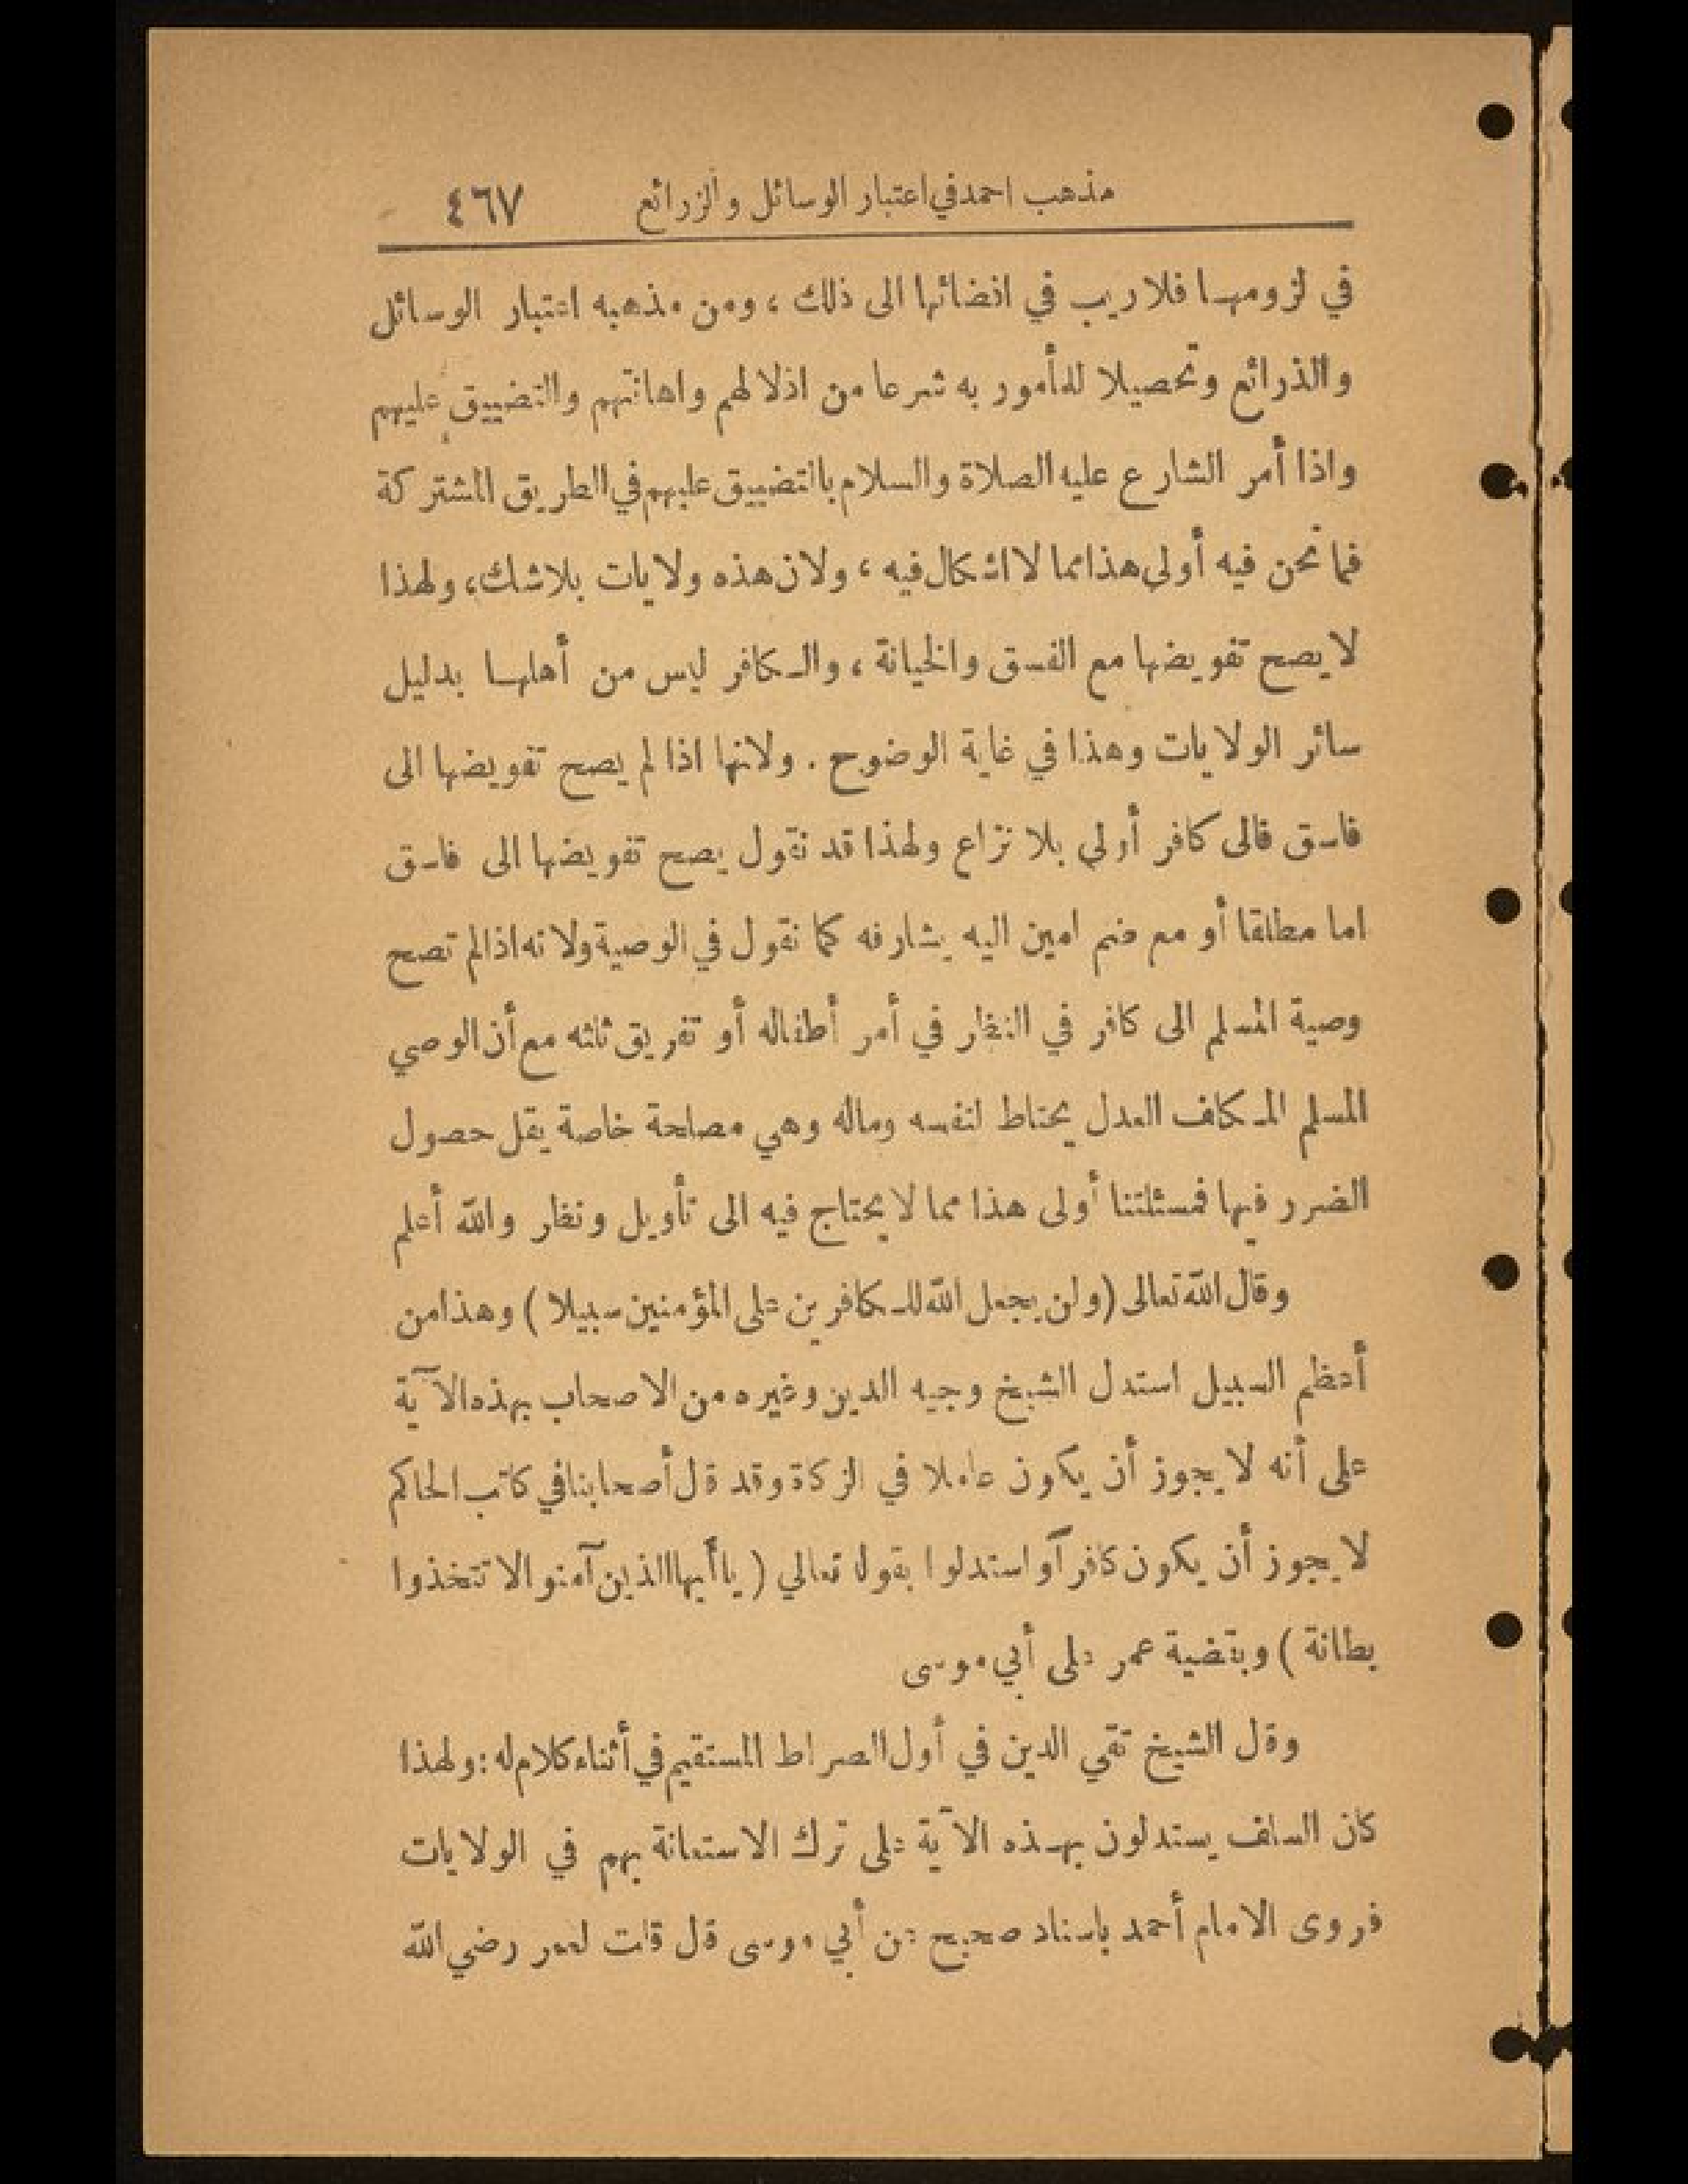 مذهب احمد في اعتبار الوسائل والزرائع ٤٦٧
في لزومها فلا ريب في افضائها الى ذلك ، ومن مذهبه اعتبار الوسائل
والذرائع وتحصيلا للمأمور به شرعا من اذلالهم واهانتهم والتضييق عليهم
واذا أمر الشارع عليه الصلاة والسلام بالتضييق عليهم في الطريق المشتركة
فما نحن فيه أولى هذا مما لا اشكال فيه ، ولان هذه ولايات بلا شك ، ولهذا
لا يصح تفويضها مع الفسق والخيانة ، والكافر ليس من أهلها بدليل
سائر الولايات وهذا في غاية الوضوح . ولانها اذا لم يصح تفويضها الى
فاسق فالى كافر أولى بلا نزاع ولهذا قد نقول يصح تفويضها الى فاسق
اما مطلقا أو مع ضم امين اليه يشارفه كما نقول في الوصية ولانه اذا لم تصح
وصية المسلم الى كافر في النظر في أمر أطفاله أو تفريق ثلثه مع أن الوصي
المسلم المكلف العدل يحتاط لنفسه وماله وهي مصلحة خاصة يقل حصول
الضرر فيها فمسئلتنا أولى هذا مما لا يحتاج فيه الى تأويل ونظر والله أعلم
وقال الله تعالى (ولن يجعل الله للكافرين على المؤمنين سبيلا) وهذا من
أعظم السبيل استدل الشيخ وجيه الدين وغيره من الاصحاب بهذه الآية
على أنه لا يجوز أن يكون عاملا في الزكاة وقد قال أصحابنا في كاتب الحاكم
لا يجوز أن يكون كافرآ واستدلوا بقوله تعالي (ياأيها الذين آمنوا لا تتخذوا
بطانة) وبقضية عمر على أبي موسى
وقال الشيخ تقي الدين في أول الصراط المستقيم في أثناء كلام له : ولهذا
كان السلف يستدلون بهذه الآية على ترك الاستعانة بهم في الولايات
فروى الامام أحمد باسناد صحيح عن أبي موسى قال قلت لعمر رضي الله